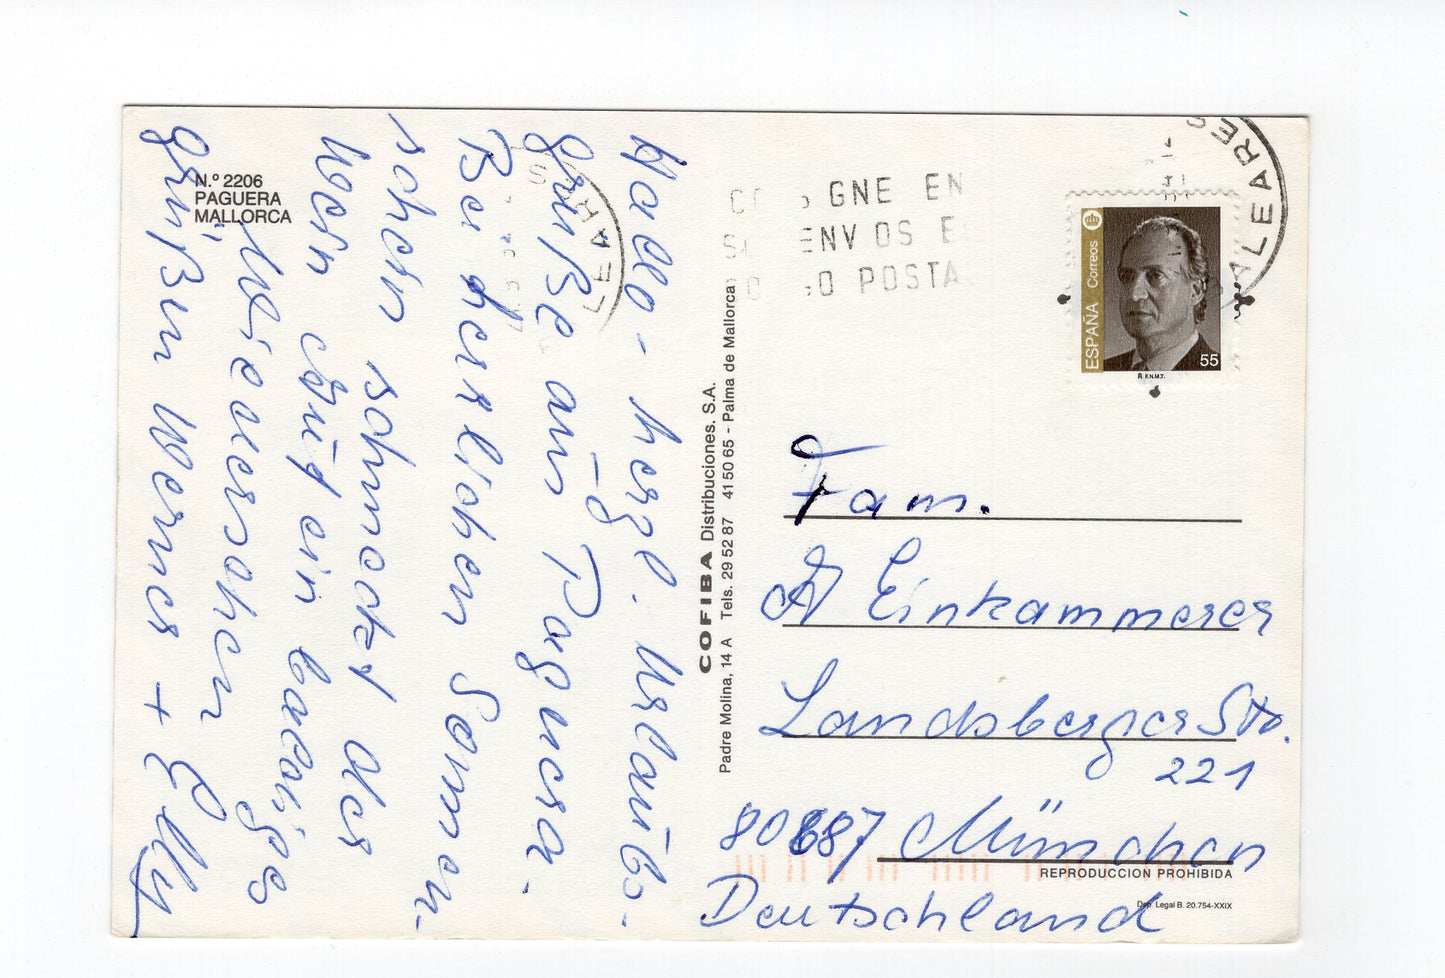 Hallo - herzl. Urlaubs-
grüße aus Paguera.
Bei herrlichem Sonnen-
schein schmeckt der
Wein
auf ein baldiges
Wiedersehen
grüßen Werner + Elly
N.º 2206
PAGUERA
MALLORCA
COFIBA Distribuciones, S.A.
Padre Molina, 14 A Tels. 29 52 87 41 50 65 - Palma de Mallorca
GNE EN
ENV OS E
O POSTA
ALEARES
ESPAÑA Correos
55
F.N.M.T.
Fam.
A Einkammerer
Landsberger Str.
221
80687 München
Deutschland
REPRODUCCION PROHIBIDA
Dep. Legal B. 20.754-XXIX